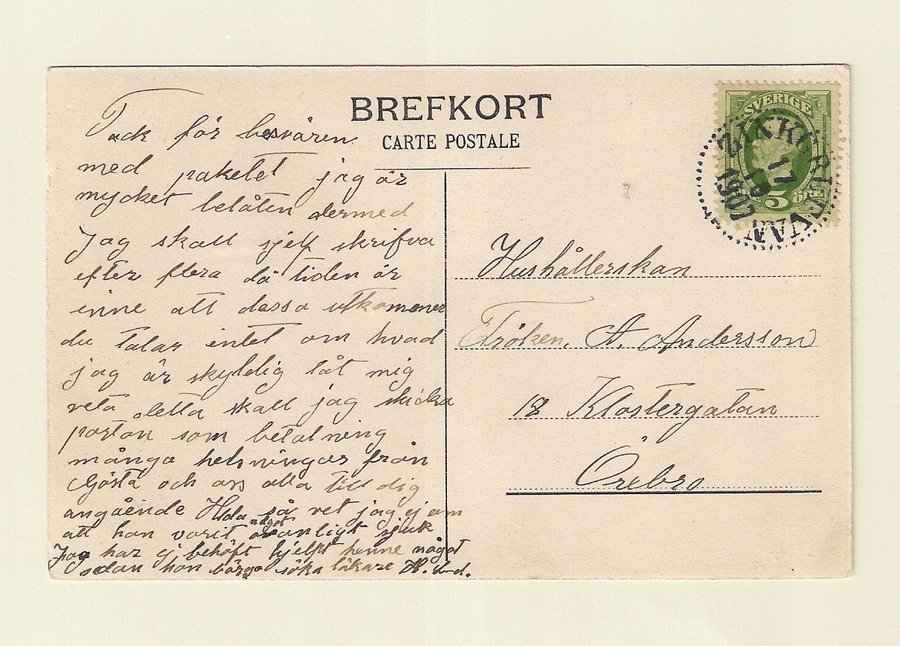 BREFKORT
CARTE POSTALE
SVERIGE
5 ÖRE
17
1907
Tack för besvären
med paketet jag är
mycket belåten dermed
Jag skall sjelf skrifva
efter flera då tiden är
inne att dassa utkommer
du talar intet om hvad
jag är skyldig låt mig
veta detta skall jag skicka
porton som betalning
många helsningar från
Gösta och oss alla till dig
angående Hilda så vet jag ej om
att hon varit något ovanligt sjuk
Jag har ej behöft hjelpt henne något
sedan hon börja söka läkare
Hushållerskan
Fröken, A. Andersson
18 Klostergatan
Örebro